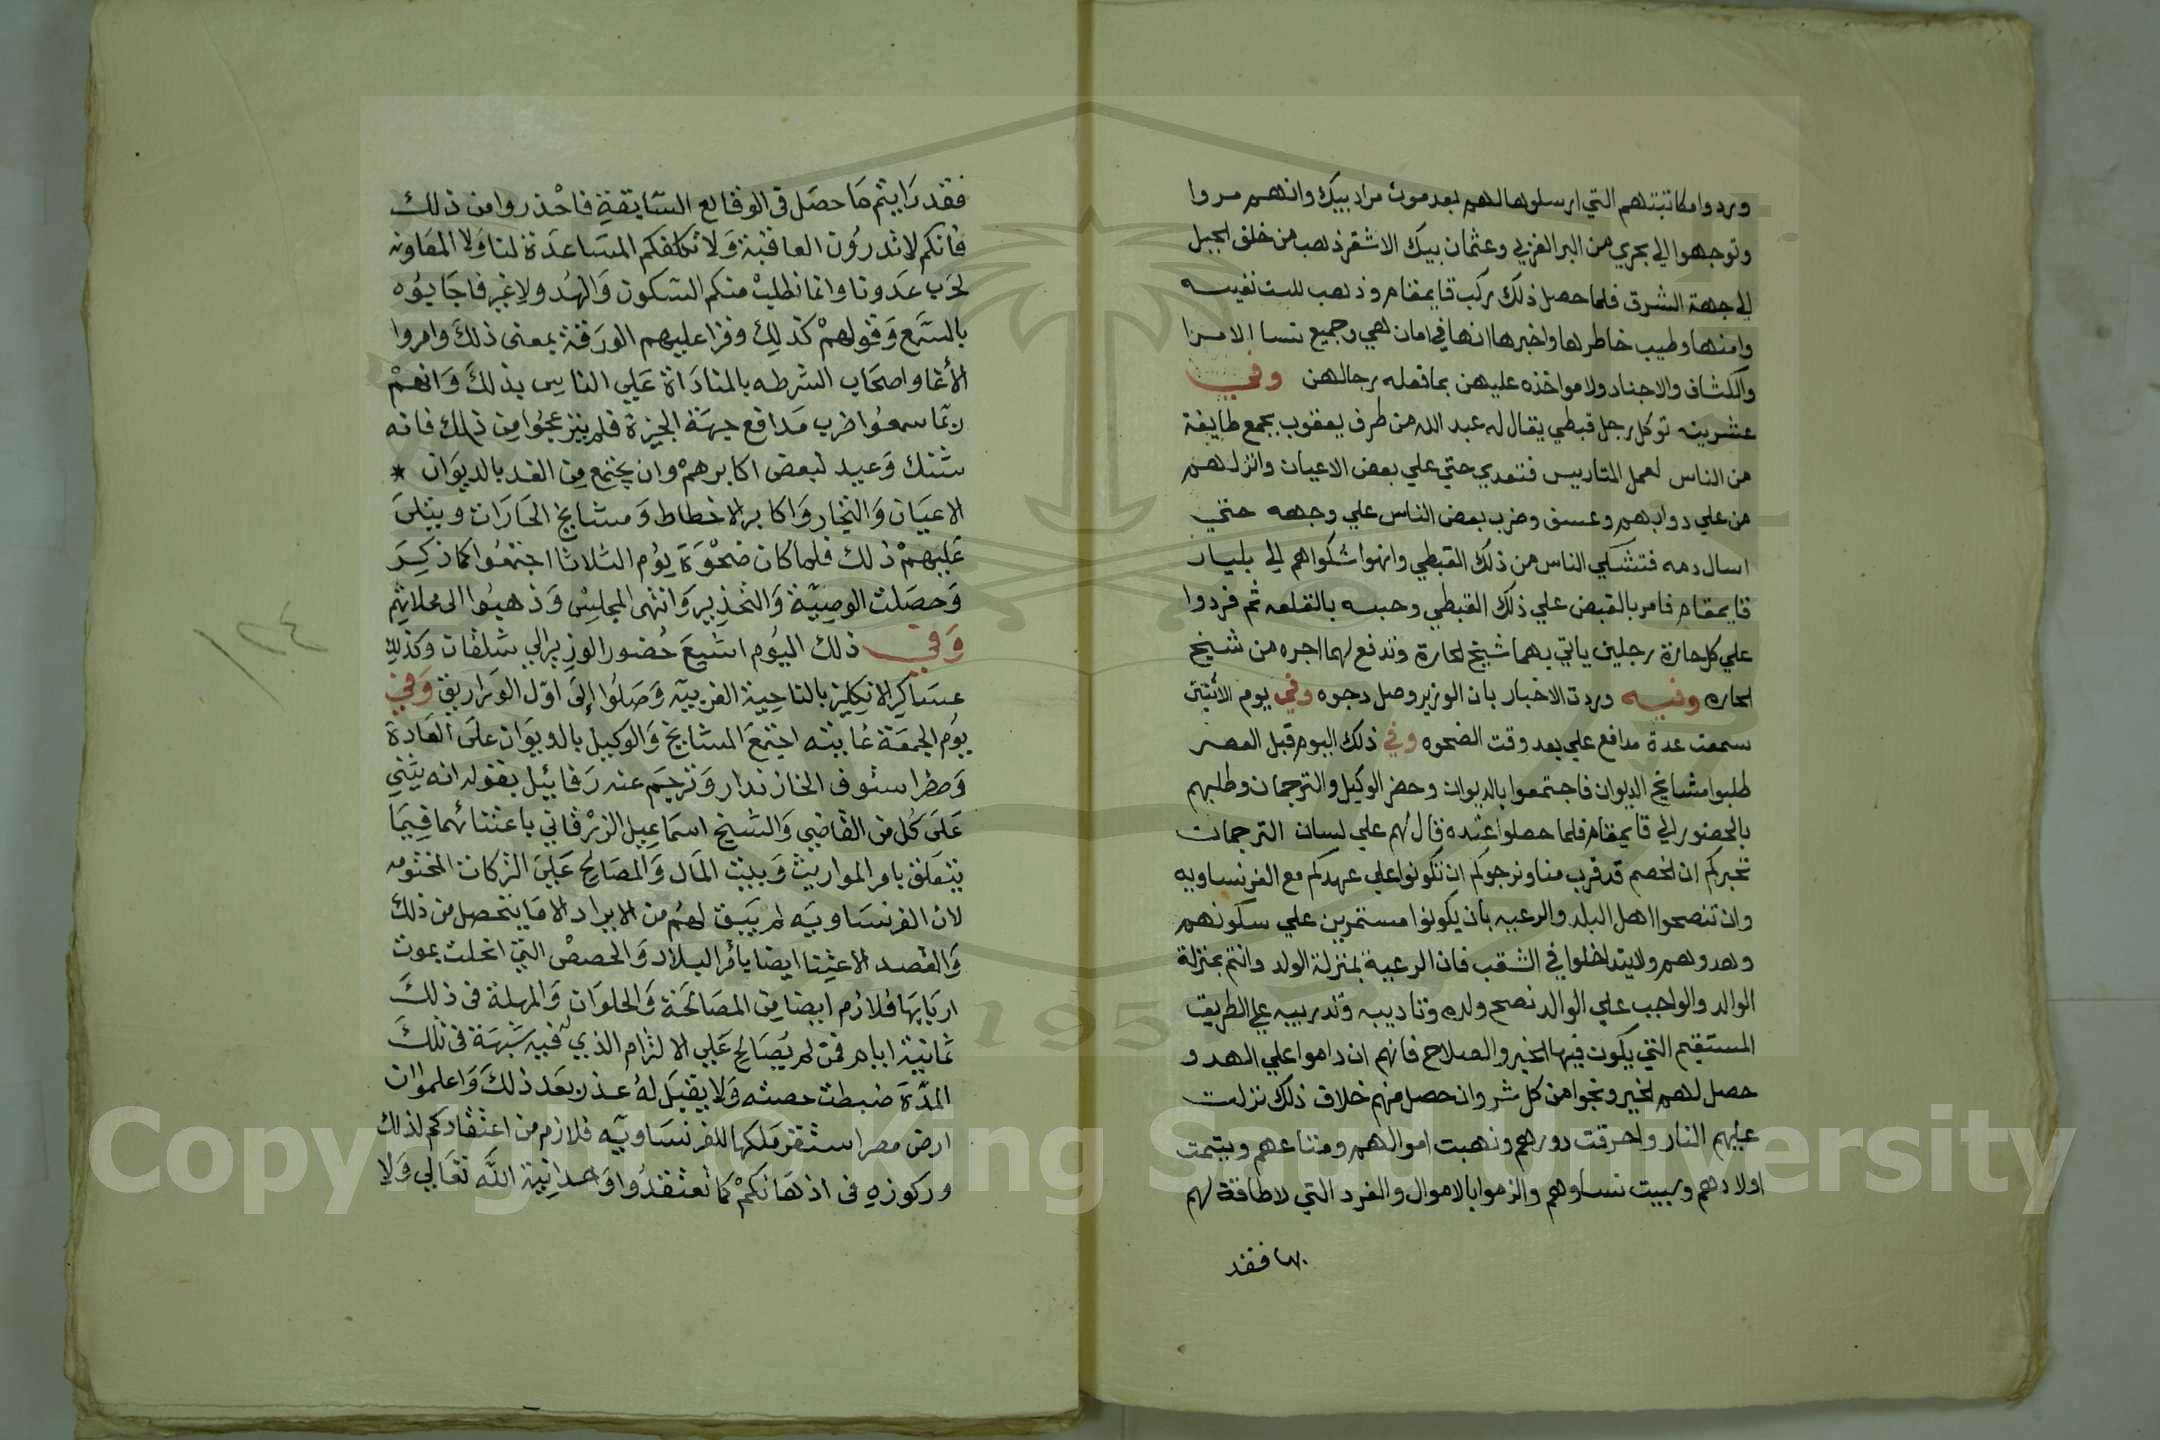 وردوا مكاتبتهم التي ارسلوها لهم بعد موت مراد بيك وانهم مروا
وتوجهوا الي بحري من البر الغربي وعثمان بيك الاشقر ذهب من خلف الجبل
الي جهة الشرق فلما حصل ذلك ركب قايمقام وذهب للست نفيسه
وامنها وطيب خاطرها واخبرها انها في امان هي وجميع نسا الامرا
والكشاف والاجناد ولا مواخذه عليهن بما فعله رجالهن وفي
عشرينه توكل رجل قبطي يقال له عبد الله من طرف يعقوب بجمع طايفة
من الناس لعمل المتاريس فتعدي حتي علي بعض الاعيان وانزلهم
من علي دوابهم وعسف وضرب بعض الناس علي وجهه حتي
اسال دمه فتشكي الناس من ذلك القبطي وانهوا شكواهم الي بليار
قايمقام فامر بالقبض علي ذلك القبطي وحبسه بالقلعه ثم فردوا
علي كل حارة رجلين ياتي بهما شيخ الحارة وتدفع لهما اجره من شيخ
الحاره وفيه وردت الاخبار بان الوزير وصل دجوه وفي يوم الاثنين
سمعت عدة مدافع علي بعد وقت الضحوه وفي ذلك اليوم قبل العصر
طلبوا مشايخ الديوان فاجتمعوا بالديوان وحضر الوكيل والترجمان وطلبهم
بالحضور الي قايمقام فلما حصلوا عنده قال لهم علي لسان الترجمان
نخبركم ان الخصم قد قرب منا ونرجوكم ان تكونوا علي عهدكم مع الفرنساويه
وان تنصحوا اهل البلد والرعيه بان يكونوا مستمرين علي سكونهم
وهدوهم ولا يتداخلوا في الشقب فان الرعية بمنزلة الولد وانتم بمنزلة
الوالد والواجب علي الوالد نصح ولده وتاديبه وتدريبه علي الطريق
المستقيم التي يكون فيها الخير والصلاح فانهم ان داموا علي الهدو
حصل لهم الخير ونجوا من كل شر وان حصل منهم خلاف ذلك نزلت
عليهم النار واحرقت دورهم ونهبت اموالهم ومتاعهم ويتمت
اولادهم وسبيت نساوهم والزموا بالاموال والفرد التي لا طاقة لهم
بها فقد
فقد رَايتم مَا حصَل في الوقايع السّابقةِ فاحْذروا من ذلك
فانكم لا تدرُون العاقبة وَلا نكلفكم المسَاعدَة لنا وَلا المعَاونه
لحَرب عَدونا وانما نطلبْ منكم السكون وَالهُدو لا غير فاجَابوُه
بالسَّمع وَقولهمْ كذلِك وقرا عليهم الورَقة بمعنى ذلكَ وامروا
الأغا واصحَاب الشرطه بالمنادَاة عَلي الناس بذلكَ وَانهمْ
ربّما سمعُوا ضرب مَدافع جهَة الجيزة فلم ينزعجُوا مِن ذلك فانه
شنك وَعيد لبعض اكابرهمْ وان يجتمع مِن الغد بالديوَان *
الاعيَان وَالتجار وَاكابر الاخطاط وَمشايخ الحَارَات ويتلىَ
عَليهمْ ذلك فلما كان ضحْوَةَ يوُم الثلاثا اجتمعُوا كما ذكِرَ
وَحصَلت الوصِيّة وَالتحْذِير وَانتهى المجلسْ وَذهبُوا الى محلاتهم
وَفي ذلك اليوُم اشيعَ حُضور الوزير الي شلقان وَكذلك
عسَاكر الانكليز بالناحِية الغربيّه وَصَلوُا إلىَ اوّل الوَراريق وَفي
يوُم الجمعَة غايته اجتمعَ المشايخ وَالوكيل بالديوَان علىَ العَادة
وَحضر استوف الخازندار وَترجَم عنه رَفائيل بقوله انه يثني
عَلىَ كُل من القاضي وَالشيخ اسمَاعيل الزرْقاني باعتنائهما فِيمَا
يتعَلق بامر الموَاريث وَبيت المَال وَالمصَالح عَلي التركات المختومه
لان الفرنسَاويَه لم يَبق لهُم من الايراد الا مَا يتحصل من ذلك
وَالقصد الاعتِنا ايضا بأمْر البلاد وَالحصصْ التي انحلت بموت
اربَابهَا فلازم ايضا مِن المصَالحَة وَالحلوَان وَالمهلة في ذلكَ
ثمانية ايام فمن لم يُصَالح عَلي الالتزام الذي له فيه شبْهَة في تلكَ
المدّة ضبطت حصته وَلا يقبَل لهُ عذر بعَد ذلكَ وَاعلموُا ان
ارض مصر استقر مَلكها للفرنسَاويّه فلازم من اعتقادكم لذلك
وركوزه في اذهَانكمْ كمَا تعتقدُوا وَحدانيّة اللّه تعَالي وَلا
١٢٤
Copyright © King Saud University
195